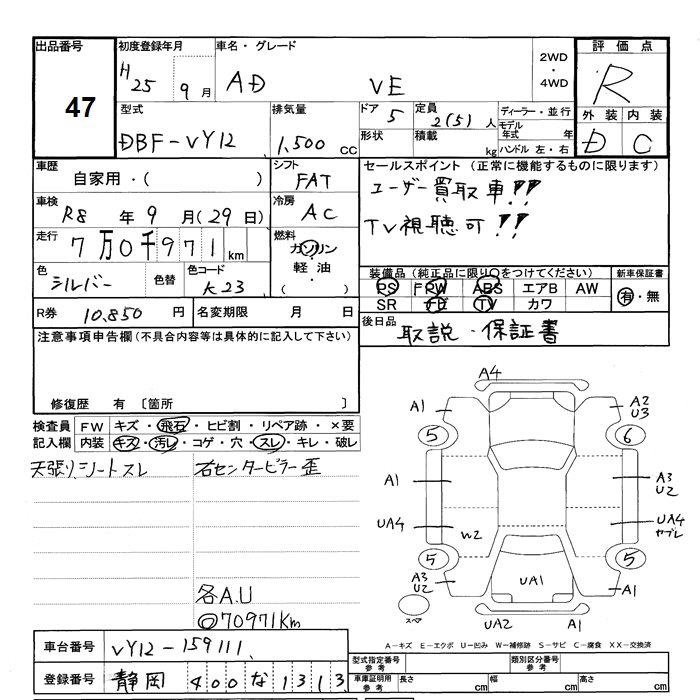 出品番号
47
初度登録年月
H25 9月
車名・グレード
AD VE
2WD
・
4WD
評価点
R
型式
DBF-VY12
排気量
1,500 CC
ドア
5
形状
定員
2(5)人
積載
kg
ディーラー・並行
モデル年式 年
ハンドル 左・右
外装 内装
D C
車歴
自家用・( )
シフト
FAT
セールスポイント (正常に機能するものに限ります)
ユーザー買取車!!
TV視聴可!!
車検
R8 年 9 月(29日)
冷房
AC
走行
7万0千971 km
燃料
ガソリン
軽油・
( )
色
シルバー
色替
色コード
K23
装備品(純正品に限り○をつけてください)
PS PW ABS エアB AW
SR ナビ TV カワ
新車保証書
有・無
R券 10,850 円
名変期限 月 日
後日品
取説・保証書
注意事項申告欄(不具合内容等は具体的に記入して下さい)
修復歴 有 〔箇所 〕
検査員記入欄
FW キズ・飛石・ヒビ割・リペア跡・×要
内装 キズ・汚レ・コゲ・穴・スレ・キレ・破レ
天張り、シートスレ
右センターピラー歪
各A.U
◎70971Km
A4
A1
A2
U3
5
6
A1
A3
U2
UA4
W2
UA4
ヤブレ
5
5
A3
U2
UA1
A1
スペア
UA2
A1
A−キズ E−エクボ U−凹み W−補修跡 S−サビ C−腐食 XX−交換済
車台番号
VY12-159111
登録番号
静岡 400 な 1313
型式指定番号
参考
類別区分番号
参考
車庫証明用
参考
長さ cm
幅 cm
高さ cm